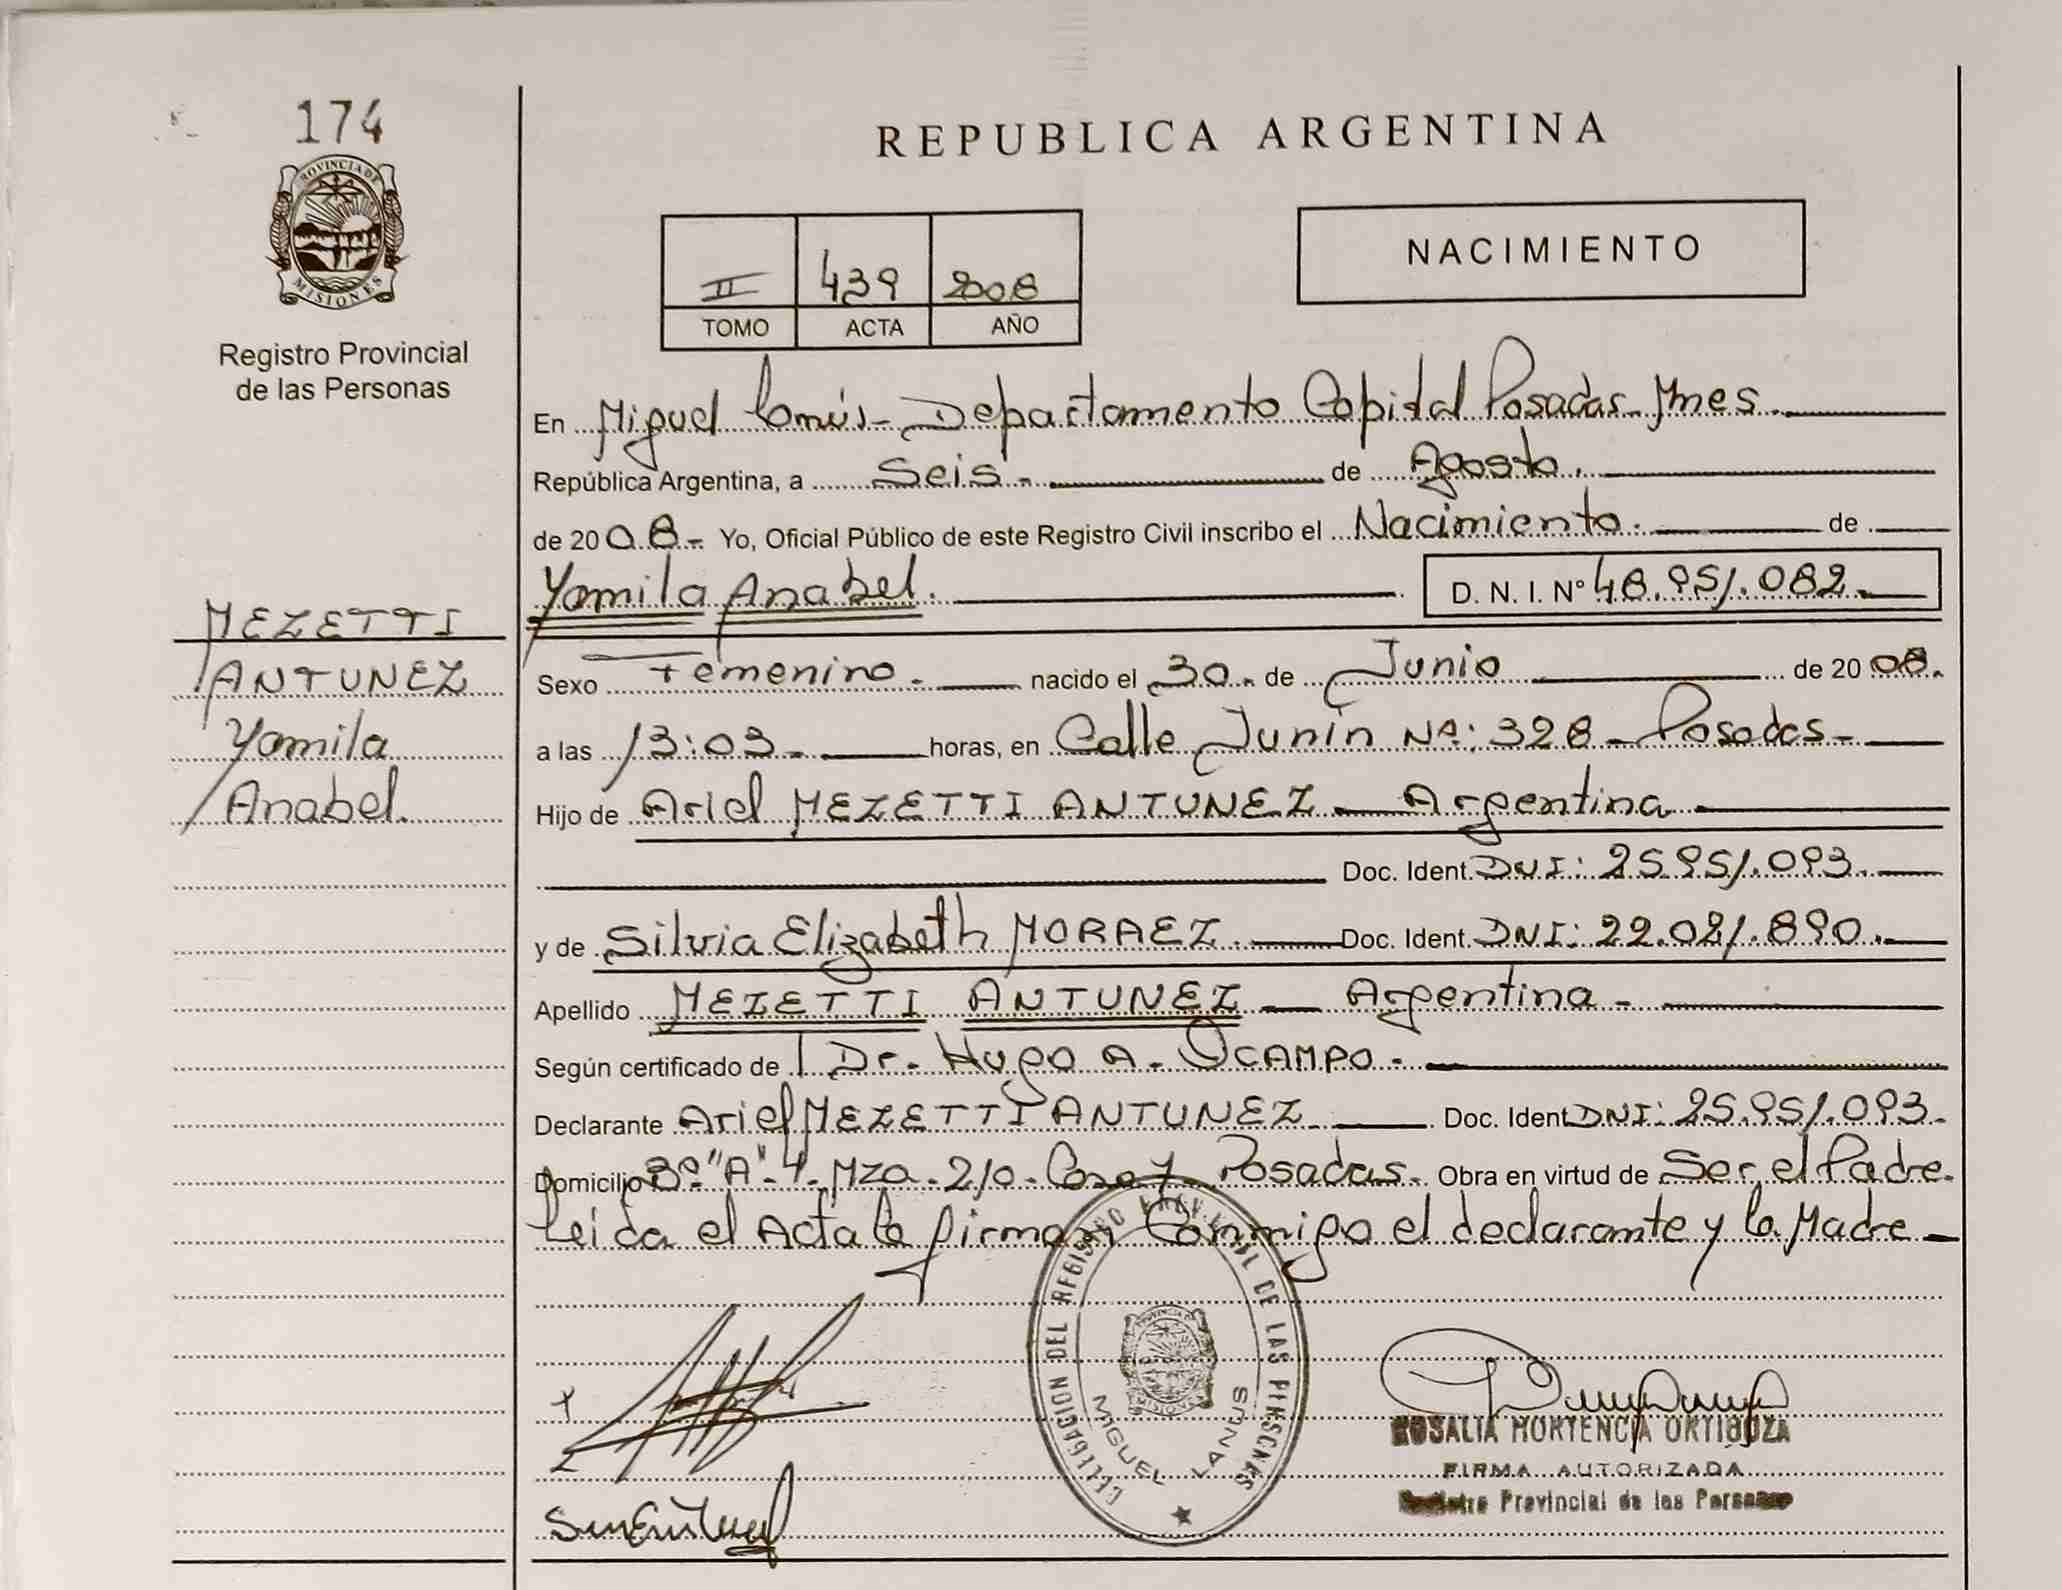 174
PROVINCIA DE
MISIONES
Registro Provincial
de las Personas
MEZETTI
ANTUNEZ
Yamila
Anabel.
REPUBLICA ARGENTINA
II 439 2008
TOMO ACTA AÑO
NACIMIENTO
En Miguel Lanús - Departamento Capital Posadas Mnes.
República Argentina, a Seis - de Agosto.
de 2008.- Yo, Oficial Público de este Registro Civil inscribo el Nacimiento. de
Yamila Anabel. D. N. I. Nº 48.951.082.
Sexo Femenino. nacido el 30. de Junio de 2008.
a las 13:03. horas, en Calle Junin Nº: 328 - Posadas -
Hijo de Ariel MEZETTI ANTUNEZ - Argentina
Doc. Ident. DNI: 25.951.093.
y de Silvia Elizabeth MORAEZ. Doc. Ident. DNI: 22.021.890.
Apellido MEZETTI ANTUNEZ - Argentina -
Según certificado de Dr. Hugo A. OCAMPO.
Declarante Ariel MEZETTI ANTUNEZ. Doc. Ident DNI: 25.951.093.
Domicilio "A" 4. Mza. 210. Casa 7 Posadas. Obra en virtud de Ser el Padre.
Leida el Acta la firman Conmigo el declarante y la Madre -
DELEGACION DEL REGISTRO PROVINCIAL DE LAS PERSONAS
PROVINCIA DE
MISIONES
MIGUEL LANUS
ROSALIA HORTENCIA ORTIGOZA
FIRMA AUTORIZADA
Registro Provincial de las Personas